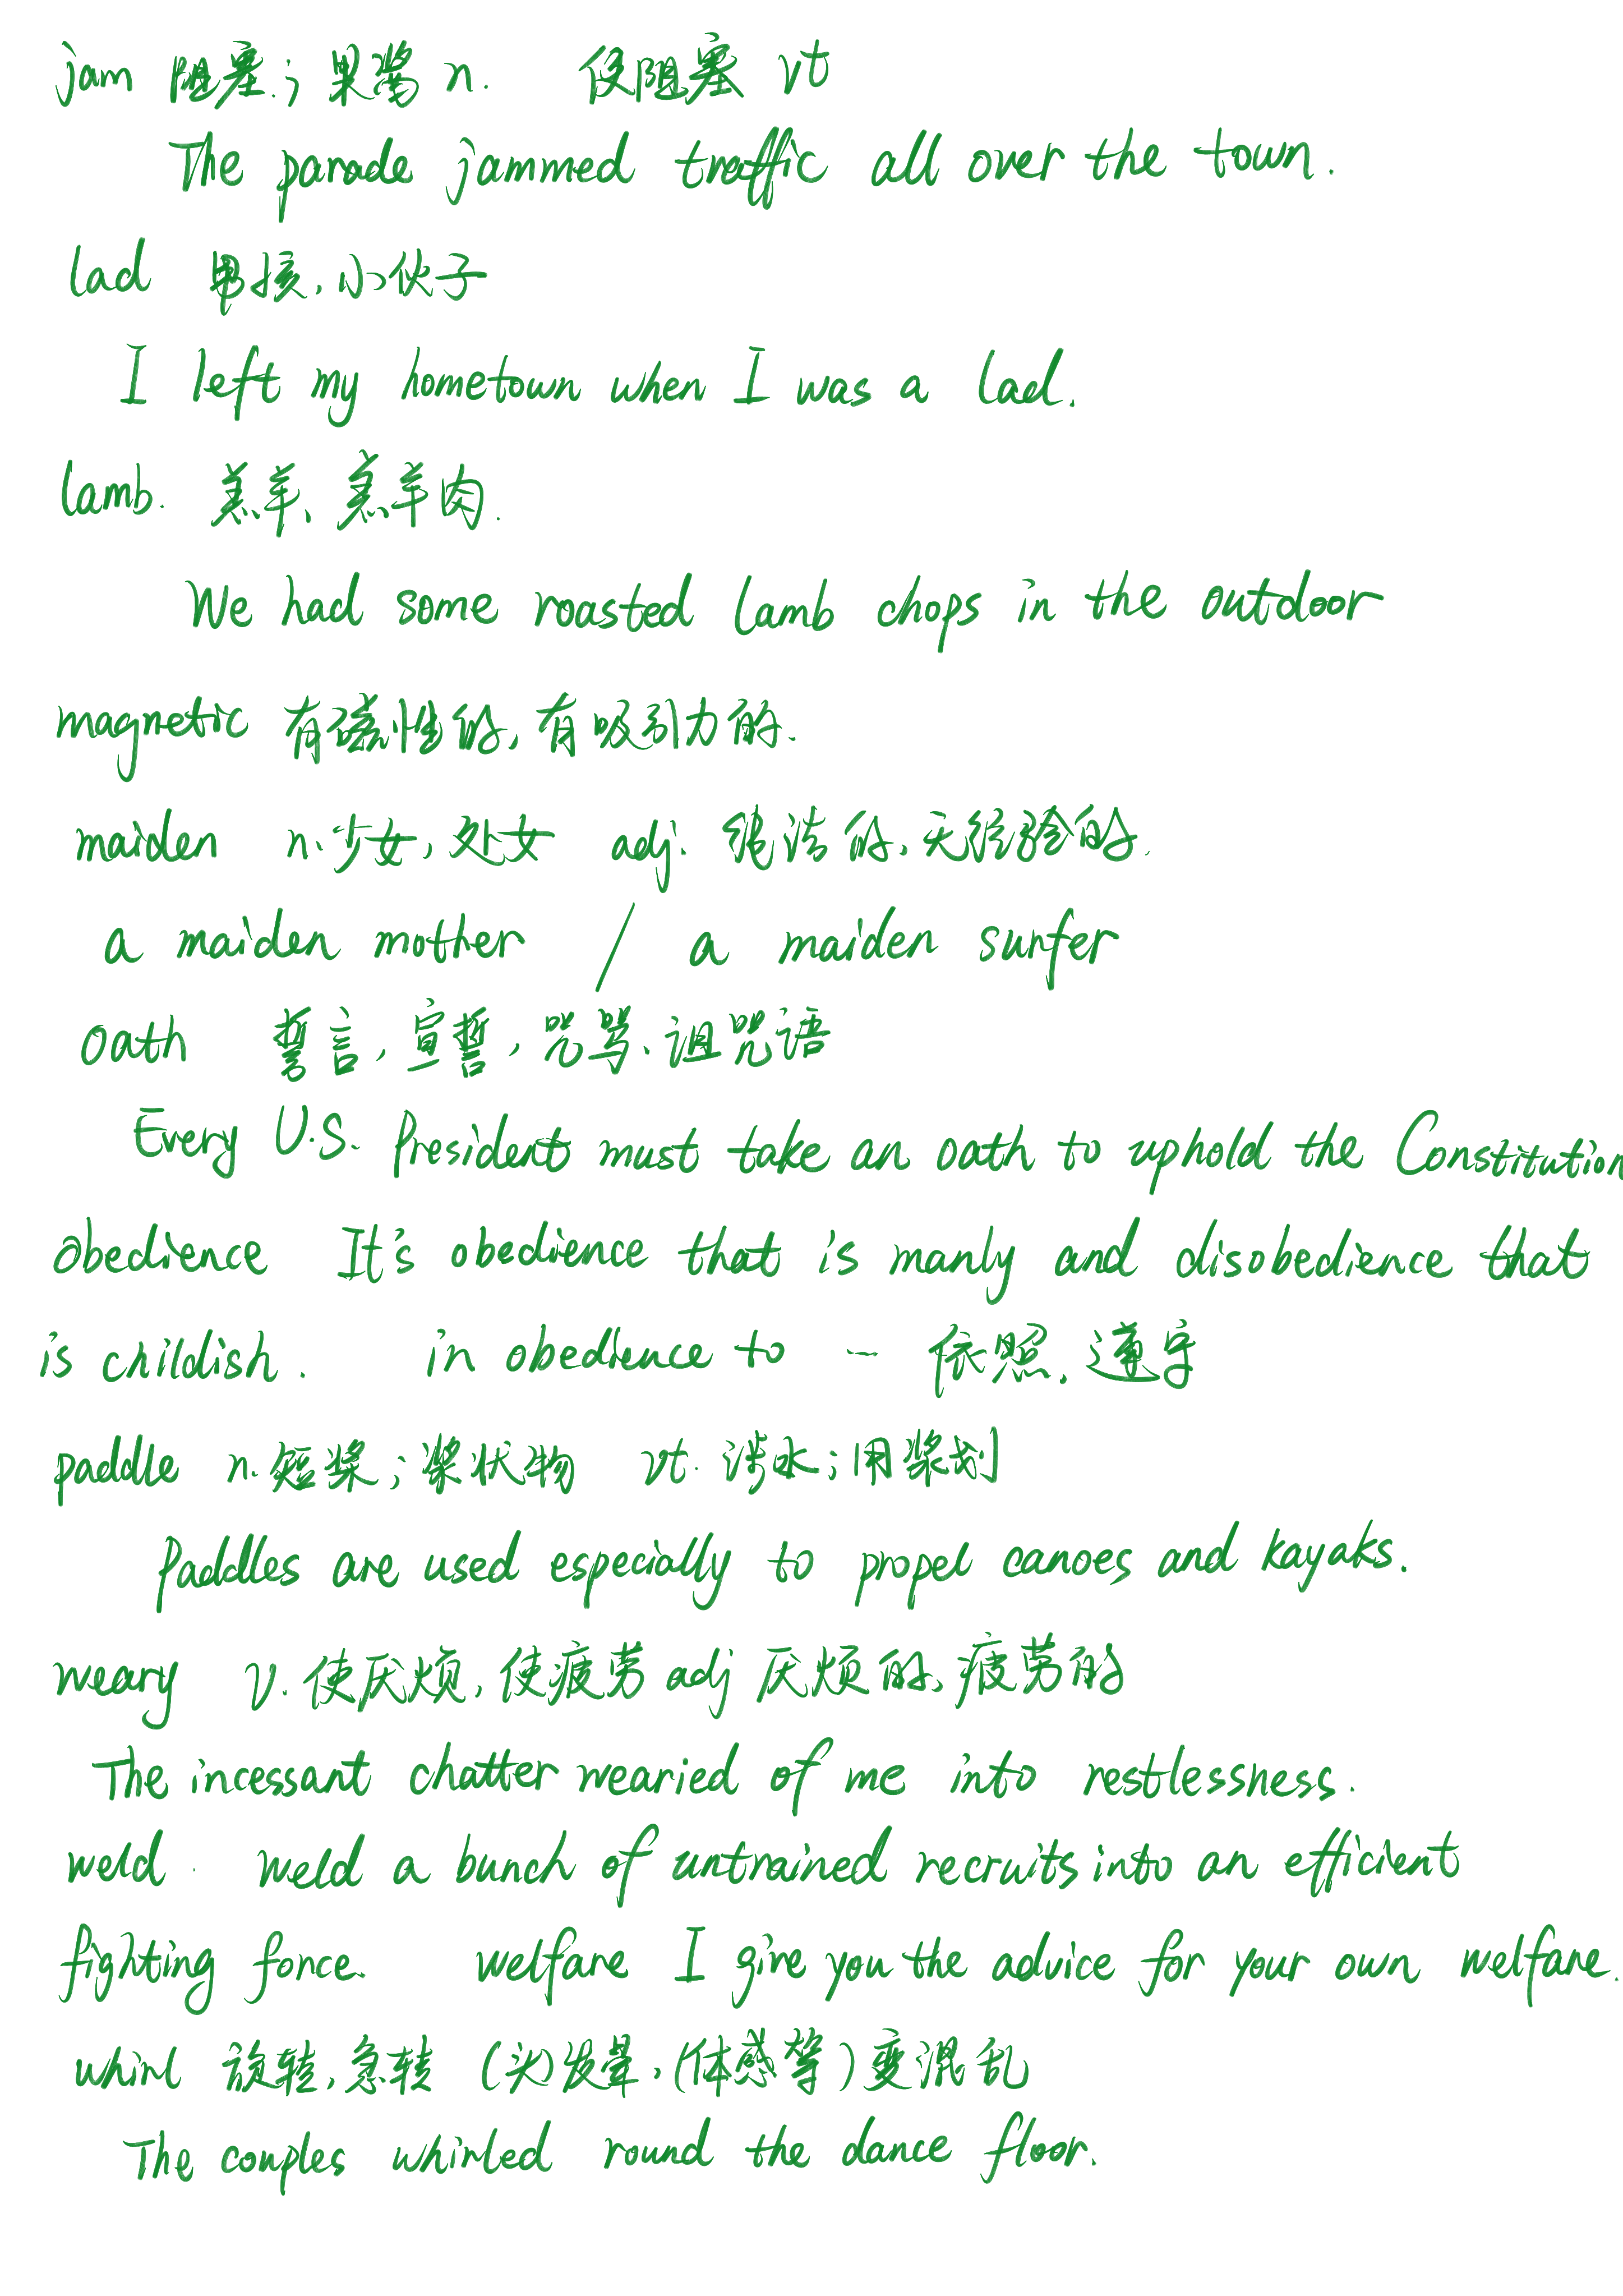 jam 阻塞；果酱 n. 使阻塞 vt
The parade jammed traffic all over the town.
lad 男孩，小伙子
I left my hometown when I was a lad.
lamb. 羔羊、羔羊肉.
We had some roasted lamb chops in the outdoor
magnetic 有磁性的，有吸引力的.
maiden n.少女，处女 adj. 纯洁的、无经验的.
a maiden mother / a maiden surfer
oath 誓言，宣誓，咒骂、诅咒语
Every U.S. President must take an oath to uphold the Constitution
obedience It's obedience that is manly and disobedience that
is childish. in obedience to … 依照，遵守
paddle n.短桨；桨状物 vt. 涉水；用桨划
Paddles are used especially to propel canoes and kayaks.
weary v.使厌烦，使疲劳 adj 厌烦的、疲劳的
The incessant chatter wearied of me into restlessness.
weld. weld a bunch of untrained recruits into an efficient
fighting force. welfare I give you the advice for your own welfare.
whirl 旋转，急转 （头）发晕，（体感等）变混乱
The couples whirled round the dance floor.